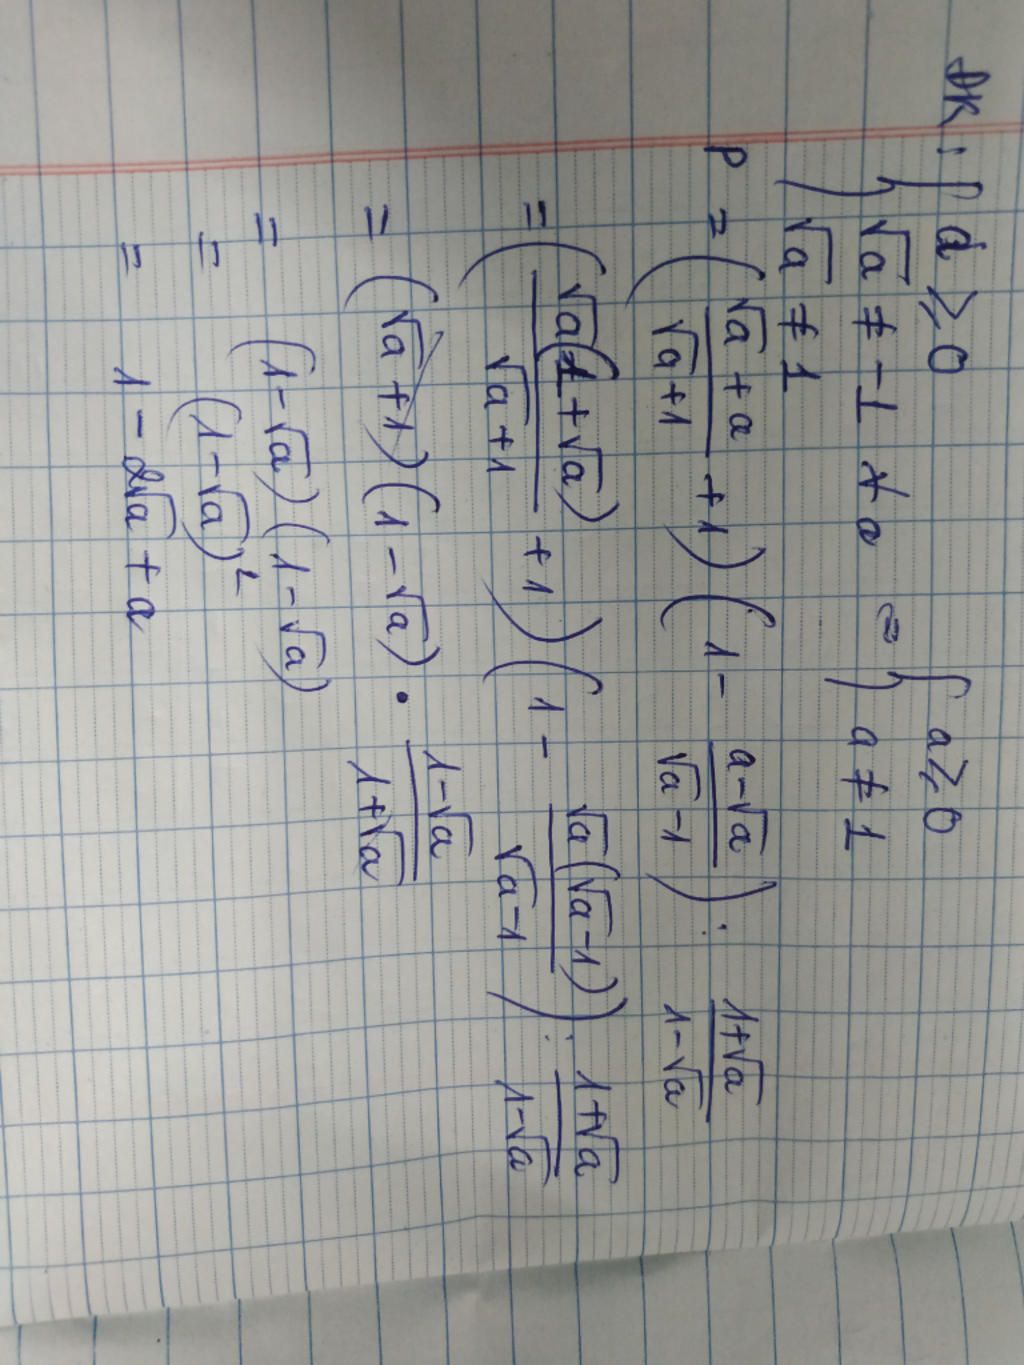 ĐK: { a ≥ 0
√a ≠ -1 ∀ a ⇔ { a ≥ 0
√a ≠ 1 a ≠ 1
P = ( (√a + a)/(√a + 1) + 1 ) ( 1 - (a - √a)/(√a - 1) ) : (1 + √a)/(1 - √a)
= ( √a(1 + √a)/(√a + 1) + 1 ) ( 1 - √a(√a - 1)/(√a - 1) ) : (1 + √a)/(1 - √a)
= (√a + 1)(1 - √a) · (1 - √a)/(1 + √a)
= (1 - √a)(1 - √a)
= (1 - √a)²
= 1 - 2√a + a